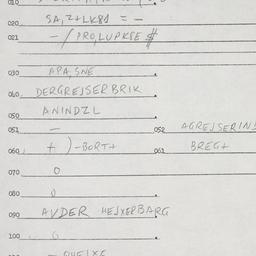 010
020 SA,Z+LK8J = -
021 -/PRO,LUPKSE $
030 APA,SNE
040, DERGREJSERBRIK
050 ANINDZL
051 - 052 AGREJSERIN
060, + )-BORT+ 061 BREG+
070 0
080 0
090 AVDER HEJXERBARG
100 0